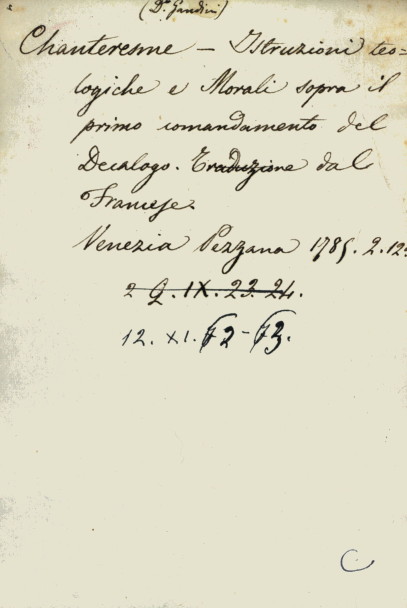 (Dr Gandini)
Chanteresme – Istruzioni teo=
logiche e Morali sopra il
primo comandamento del
Decalogo. Traduzione dal
Francese.
Venezia Pezzana 1785. 2. 12º
2 G. IX. 23. 24.
12. XI. 72-73.
C